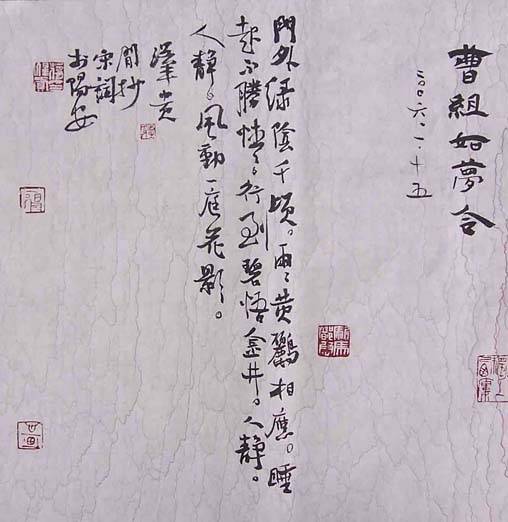 曹組如夢令
二〇〇六.一.十五
門外綠陰千頃。兩〻黃鸝相應。睡
起不勝情。行到碧梧金井。人靜。
人靜。風動一庭花影。
貴
閒抄
宋詞
於陽安